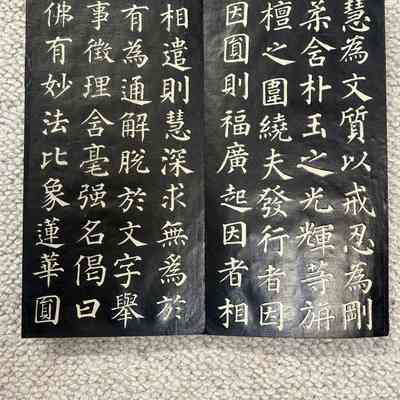 慧為文質以戒忍為剛
柔含朴玉之光輝等旃
檀之圍繞夫發行者因
因圓則福廣起因者相
相遣則慧深求無爲於
有為通解脫於文字舉
事徵理含毫强名偈曰
佛有妙法比象蓮華圓